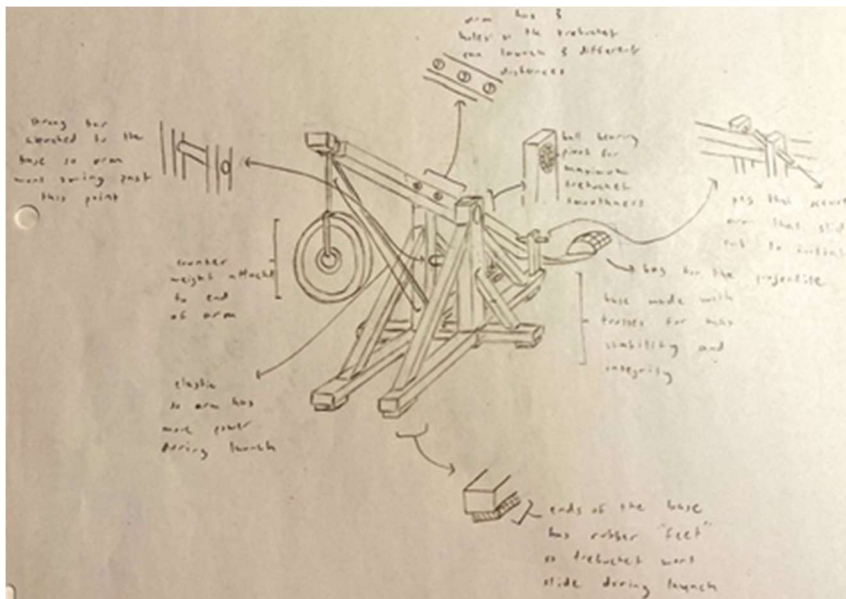 arm has 3
holes so the trebuchet
can launch 3 different
distances
strong bar
attached to the
base so arm
wont swing past
this point
ball bearing
pivot for
maximum
trebuchet
smoothness
peg that secures
arm that slides
out to
counter
weight attached
to end
of arm
bag for the projectile
base made with
trusses for max
stability and
integrity
elastic
so arm has
more power
during launch
ends of the base
has rubber "feet"
so trebuchet wont
slide during launch